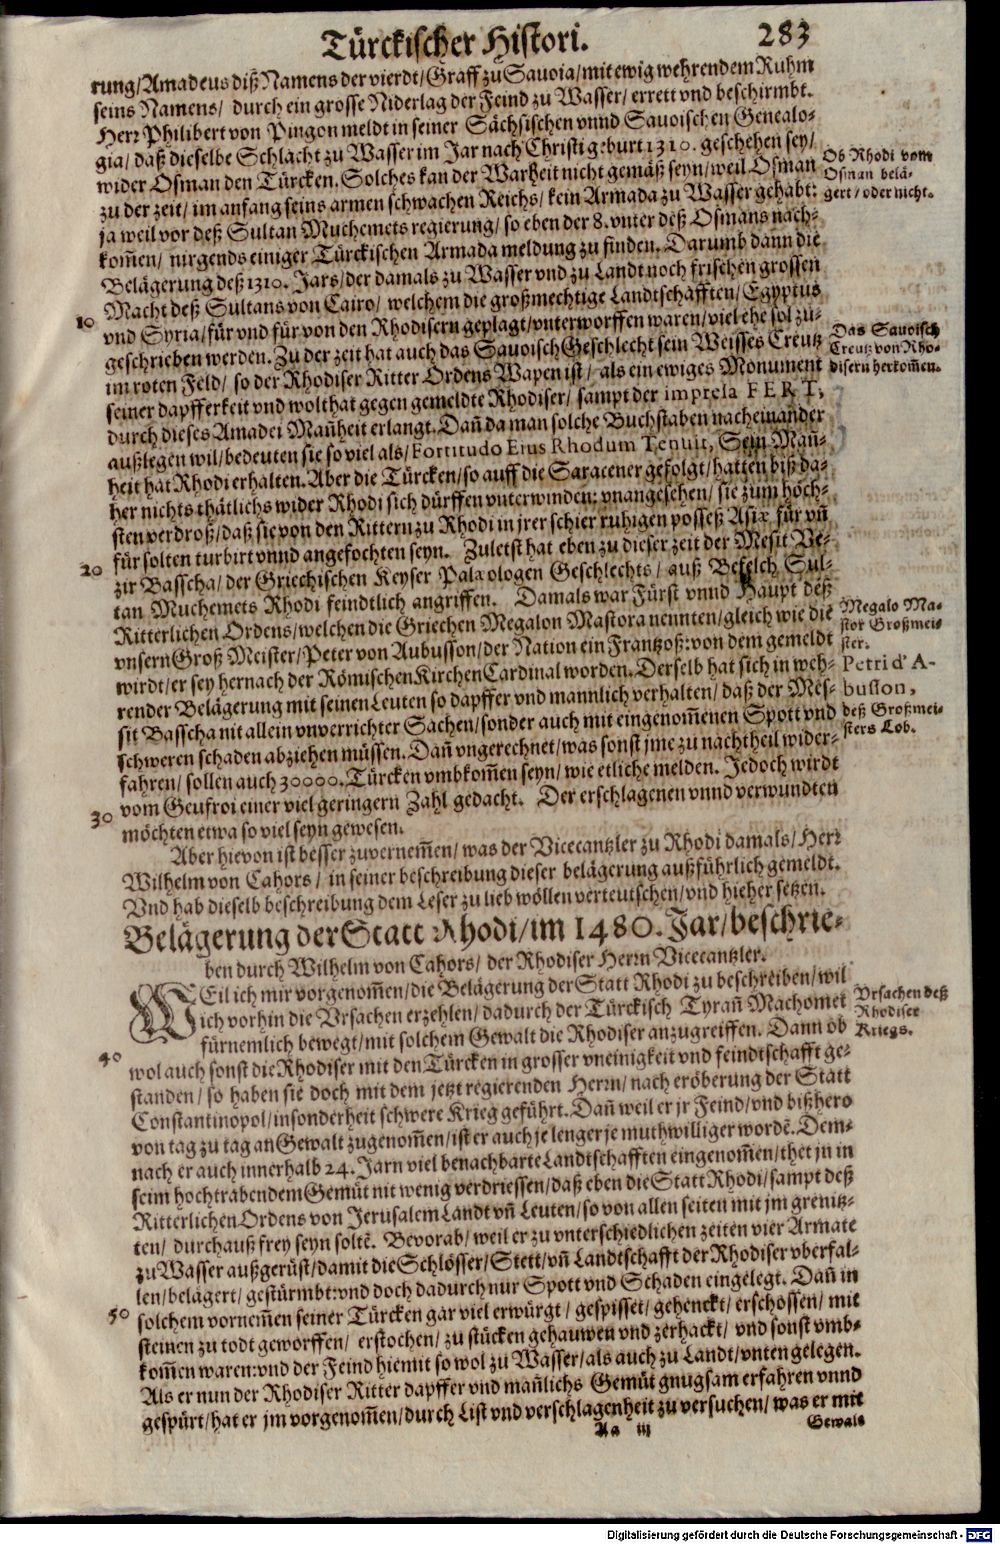 Türckischer Histori. 283
rung/Amadeus diß Namens der vierdt/Graff zu Savoia/mit ewig wehrendem Ruhm
seins Namens/ durch ein grosse Niderlag der Feind zu Wasser/ errett vnd beschirmbt.
Herr Philibert von Pingon meldt in seiner Sächsischen vnnd Savoischen Genealo-
gia/ daß dieselbe Schlacht zu Wasser im Jar nach Christi geburt 1310. geschehen sey/
wider Osman den Türcken. Solches kan der Warheit nicht gemäß seyn/weil Osman
zu der zeit/ im anfang seins armen schwachen Reichs/ kein Armada zu Wasser gehabt:
ja weil vor deß Sultan Muchemets regierung/ so eben der 8. vnter deß Osmans nach-
kom̃en/ nirgends einiger Türckischen Armada meldung zu finden. Darumb dann die
Belägerung deß 1310. Jars/der damals zu Wasser vnd zu Landt noch frischen grossen
Macht deß Sultans von Cairo/ welchem die großmechtige Landtschäfften/ Egyptus
vnd Syria/für vnd für von den Rhodisern geplagt/vnterworffen waren/viel ehe sol zu-
geschrieben werden. Zu der zeit hat auch das Savoisch Geschlecht sein Weisses Creutz
im roten Feld/ so der Rhodiser Ritter Ordens Wapen ist/ als ein ewiges Monument
seiner dapfferkeit vnd wolthat gegen gemeldte Rhodiser/ sampt der impresa F E R T,
durch dieses Amadei Mañheit erlangt. Dañ da man solche Buchstaben nacheinander
außlegen wil/bedeuten sie so viel als/Fortitudo Eius Rhodum Tenuit, Sein Mañ-
heit hat Rhodi erhalten. Aber die Türcken/so auff die Saracener gefolgt/hatten biß da-
her nichts thätlichs wider Rhodi sich dürffen vnterwinden: vnangesehen/ sie zum höch-
sten verdroß/daß sie von den Rittern zu Rhodi in jrer schier ruhigen posseß Asiæ für vñ
für solten turbirt vnnd angefochten seyn. Zuletst hat eben zu dieser zeit der Mesit Ve-
zir Basscha/der Griechischen Keyser Palæologen Geschlechts/ auß Befelch Sul-
tan Muchemets Rhodi feindtlich angriffen. Damals war Fürst vnnd Haupt deß
Ritterlichen Ordens/welchen die Griechen Megalon Mastora nennten/gleich wie die
vnsern Groß Meister/Peter von Aubusson/der Nation ein Frantzoß: von dem gemeldt
wirdt/er sey hernach der Römischen Kirchen Cardinal worden. Derselb hat sich in weh-
render Belägerung mit seinen Leuten so dapffer vnd mannlich verhalten/ daß der Mes-
sit Basscha nit allein vnverrichter Sachen/sonder auch mit eingenom̃enen Spott vnd
schweren schaden abziehen müssen. Dañ vngerechnet/was sonst jme zu nachtheil wider-
fahren/ sollen auch 30000. Türcken vmbkom̃en seyn/ wie etliche melden. Jedoch wirdt
vom Geufroi einer viel geringern Zahl gedacht. Der erschlagenen vnnd verwundten
möchten etwa so viel seyn gewesen.
Aber hievon ist besser zuvernem̃en/ was der Vicecantzler zu Rhodi damals/ Herr
Wilhelm von Cahors/ in seiner beschreibung dieser belägerung außführlich gemeldt.
Vnd hab dieselb beschreibung dem Leser zu lieb wöllen verteutschen/vnd hieher setzen.
Belägerung der Statt Rhodi/im 1480. Jar/beschrie-
ben durch Wilhelm von Cahors/ der Rhodiser Herrn Vicecantzler.
WEil ich mir vorgenom̃en/die Belägerung der Statt Rhodi zu beschreiben/wil
ich vorhin die Vrsachen erzehlen/dadurch der Türckisch Tyrañ Machomet
fürnemlich bewegt/mit solchem Gewalt die Rhodiser anzugreiffen. Dann ob
wol auch sonst die Rhodiser mit den Türcken in grosser vneinigkeit vnd feindtschafft ge-
standen/ so haben sie doch mit dem jetzt regierenden Herrn/ nach eröberung der Statt
Constantinopol/insonderheit schwere Krieg geführt. Dañ weil er jr Feind/vnd bißhero
von tag zu tag an Gewalt zugenom̃en/ist er auch je lenger je muthwilliger wordẽ. Dem-
nach er auch innerhalb 24. Jarn viel benachbarte Landtschafften eingenom̃en/thet jn in
seim hochtrabendem Gemüt nit wenig verdriessen/daß eben die Statt Rhodi/sampt deß
Ritterlichen Ordens von Jerusalem Landt vñ Leuten/so von allen seiten mit jm grenitz-
ten/ durchauß frey seyn soltẽ. Bevorab/ weil er zu vnterschiedlichen zeiten vier Armate
zu Wasser außgerüst/damit die Schlösser/Stett/vñ Landtschafft der Rhodiser vberfal-
len/belägert/ gestürmbt:vnd doch dadurch nur Spott vnd Schaden eingelegt. Dañ in
solchem vornem̃en seiner Türcken gar viel erwürgt/ gespisset/gehenckt/ erschossen/ mit
steinen zu todt geworffen/ erstochen/ zu stücken gehauwen vnd zerhackt/ vnd sonst vmb-
kom̃en waren:vnd der Feind hiemit so wol zu Wasser/als auch zu Landt/vnten gelegen.
Als er nun der Rhodiser Ritter dapffer vnd mañlichs Gemüt gnugsam erfahren vnnd
gespürt/hat er jm vorgenom̃en/durch List vnd verschlagenheit zu versuchen/ was er mit
Aa iii Gewalt
Ob Rhodi vom
Osman belä-
gert/ oder nicht.
Das Savoisch
Creutz von Rho-
disern herkom̃en.
Megalo Ma-
stor Großmei-
ster.
Petri d' A-
busson,
deß Großmei-
sters Lob.
Vrsachen deß
Rhodiser
Kriegs.
10
20
30
40
50
Digitalisierung gefördert durch die Deutsche Forschungsgemeinschaft - DFG